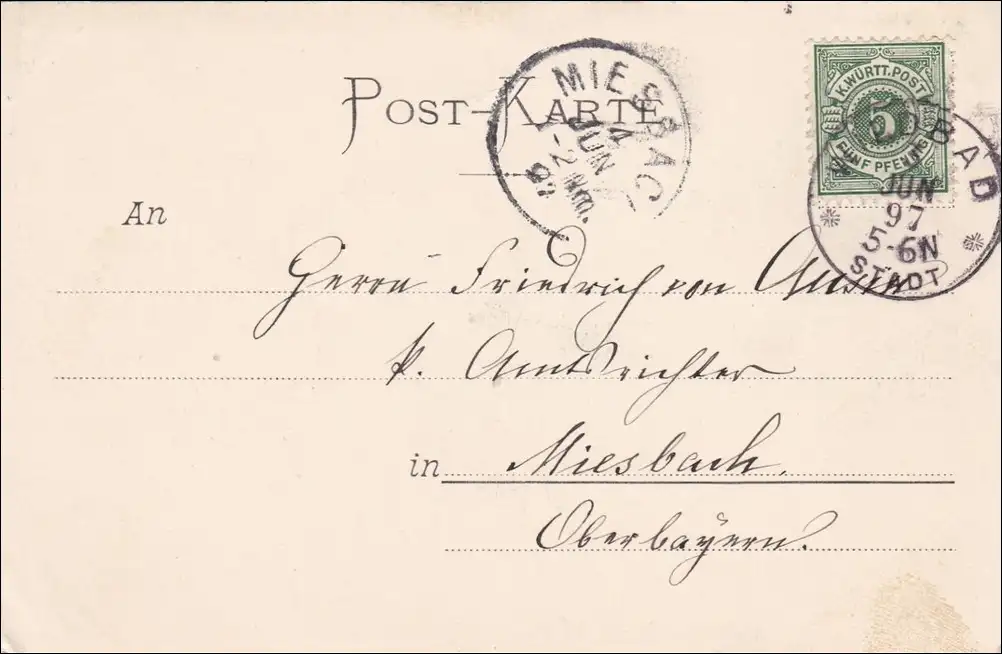 POST-KARTE
MIESBAC
4
JUN
1-2 NM.
97
K. WÜRTT. POST
5
FÜNF PFENNIG
DBAD
JUN
97
5-6N
STADT
An
Herrn Friedrich von
k. Amtsrichter
in Miesbach.
Oberbayern.